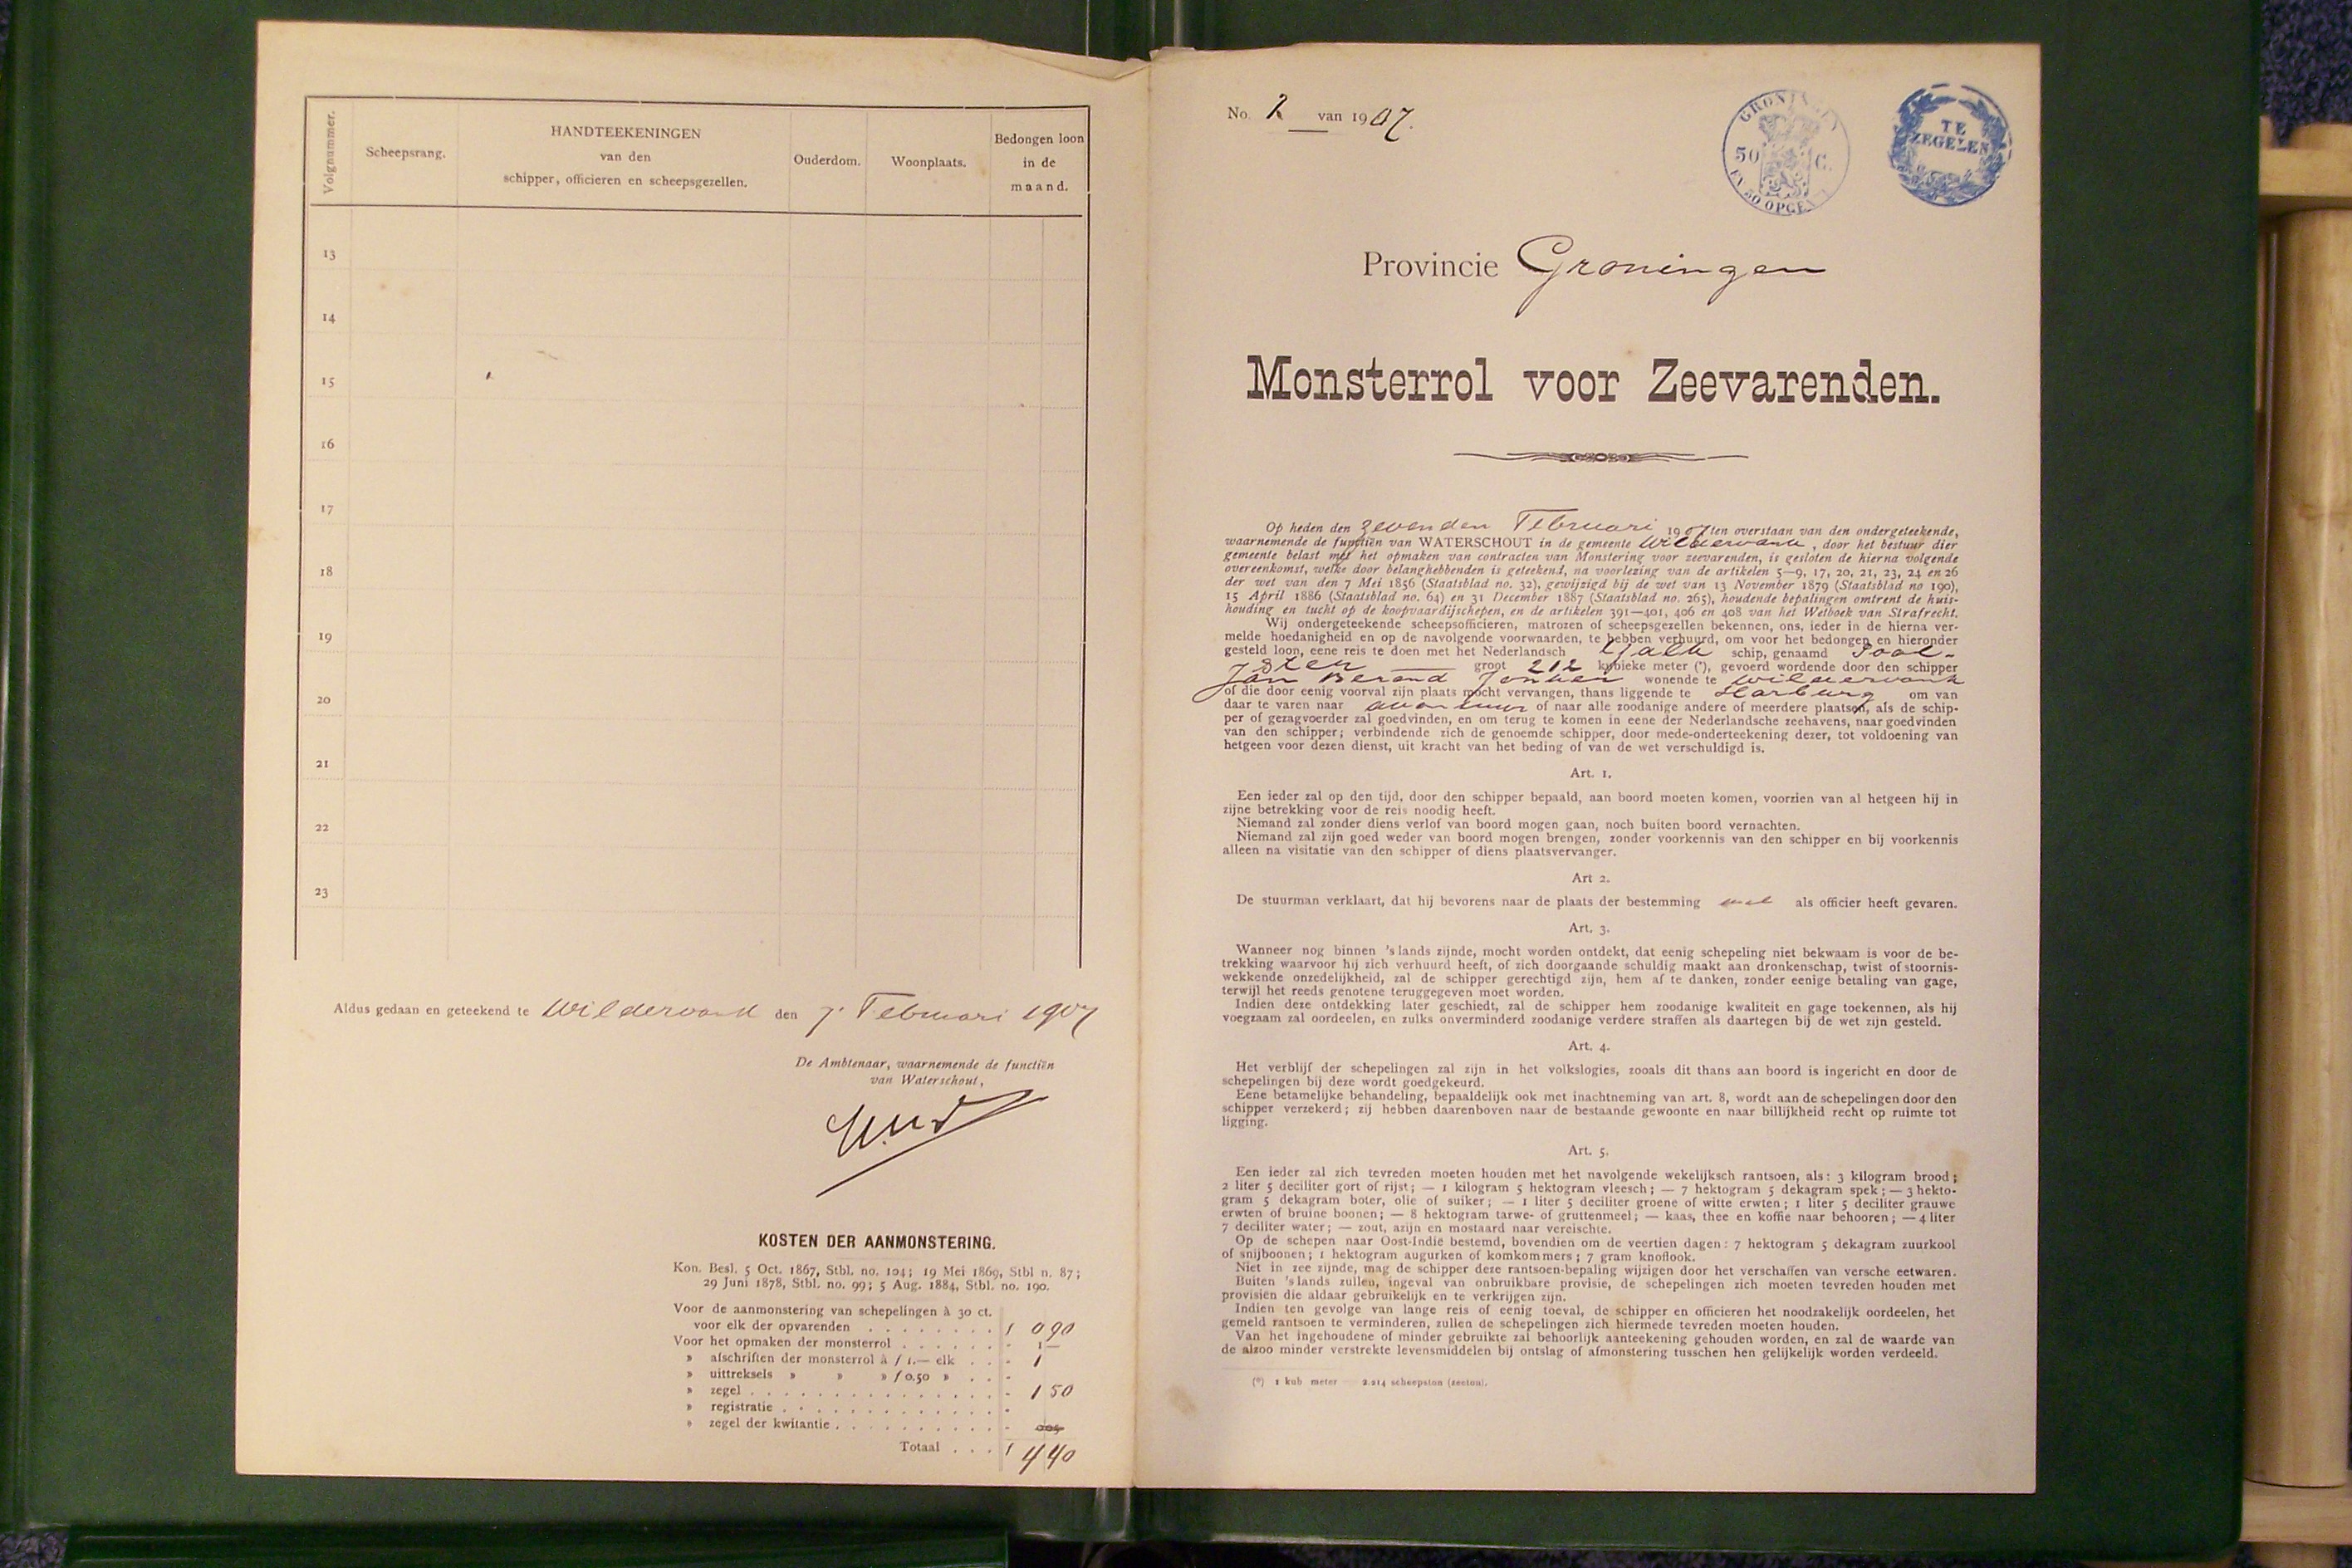 Volgnummer.
Scheepsrang.
HANDTEEKENINGEN
van den
schipper, officieren en scheepsgezellen.
Ouderdom.
Woonplaats.
Bedongen loon
in de
maand.
13
14
15
16
17
18
19
20
21
22
23
Aldus gedaan en geteekend te Wildervank den 7 Februari 1907
De Ambtenaar, waarnemende de functiën
van Waterschout,
KOSTEN DER AANMONSTERING.
Kon. Besl. 5 Oct. 1867, Stbl. no. 104; 19 Mei 1869, Stbl n. 87;
29 Juni 1878, Stbl. no. 99; 5 Aug. 1884, Stbl. no. 190.
Voor de aanmonstering van schepelingen à 30 ct.
voor elk der opvarenden . . . . . . . . f 0 90
Voor het opmaken der monsterrol . . . . . . - 1 —
» afschriften der monsterrol à f 1.— elk . . - 1
» uittreksels » » » f 0.50 » . . -
» zegel . . . . . . . . . . . . . . . . - 1 50
» registratie . . . . . . . . . . . . . . -
» zegel der kwitantie . . . . . . . . . . -
Totaal . . . f 4 40
No. 2 van 1907.
GRONINGEN
50 C.
EN 50 OPCEN
TE
ZEGELEN
Provincie Groningen
Monsterrol voor Zeevarenden.
Op heden den zevenden Februari 1907 ten overstaan van den ondergeteekende,
waarnemende de functiën van WATERSCHOUT in de gemeente Wildervank, door het bestuur dier
gemeente belast met het opmaken van contracten van Monstering voor zeevarenden, is gesloten de hierna volgende
overeenkomst, welke door belanghebbenden is geteekend, na voorlezing van de artikelen 5—9, 17, 20, 21, 23, 24 en 26
der wet van den 7 Mei 1856 (Staatsblad no. 32), gewijzigd bij de wet van 13 November 1879 (Staatsblad no 190),
15 April 1886 (Staatsblad no. 64) en 31 December 1887 (Staatsblad no. 265), houdende bepalingen omtrent de huis-
houding en tucht op de koopvaardijschepen, en de artikelen 391—401, 406 en 408 van het Wetboek van Strafrecht.
Wij ondergeteekende scheepsofficieren, matrozen of scheepsgezellen bekennen, ons, ieder in de hierna ver-
melde hoedanigheid en op de navolgende voorwaarden, te hebben verhuurd, om voor het bedongen en hieronder
gesteld loon, eene reis te doen met het Nederlandsch tjalk schip, genaamd Pool-
ster groot 212 kubieke meter (*), gevoerd wordende door den schipper
Jan Berend Jonker wonende te Wildervank
of die door eenig voorval zijn plaats mocht vervangen, thans liggende te Harburg om van
daar te varen naar avontuur of naar alle zoodanige andere of meerdere plaatsen, als de schip-
per of gezagvoerder zal goedvinden, en om terug te komen in eene der Nederlandsche zeehavens, naar goedvinden
van den schipper; verbindende zich de genoemde schipper, door mede-onderteekening dezer, tot voldoening van
hetgeen voor dezen dienst, uit kracht van het beding of van de wet verschuldigd is.
Art. 1.
Een ieder zal op den tijd, door den schipper bepaald, aan boord moeten komen, voorzien van al hetgeen hij in
zijne betrekking voor de reis noodig heeft.
Niemand zal zonder diens verlof van boord mogen gaan, noch buiten boord vernachten.
Niemand zal zijn goed weder van boord mogen brengen, zonder voorkennis van den schipper en bij voorkennis
alleen na visitatie van den schipper of diens plaatsvervanger.
Art 2.
De stuurman verklaart, dat hij bevorens naar de plaats der bestemming wel als officier heeft gevaren.
Art. 3.
Wanneer nog binnen 's lands zijnde, mocht worden ontdekt, dat eenig schepeling niet bekwaam is voor de be-
trekking waarvoor hij zich verhuurd heeft, of zich doorgaande schuldig maakt aan dronkenschap, twist of stoornis-
wekkende onzedelijkheid, zal de schipper gerechtigd zijn, hem af te danken, zonder eenige betaling van gage,
terwijl het reeds genotene teruggegeven moet worden.
Indien deze ontdekking later geschiedt, zal de schipper hem zoodanige kwaliteit en gage toekennen, als hij
voegzaam zal oordeelen, en zulks onverminderd zoodanige verdere straffen als daartegen bij de wet zijn gesteld.
Art. 4.
Het verblijf der schepelingen zal zijn in het volkslogies, zooals dit thans aan boord is ingericht en door de
schepelingen bij deze wordt goedgekeurd.
Eene betamelijke behandeling, bepaaldelijk ook met inachtneming van art. 8, wordt aan de schepelingen door den
schipper verzekerd; zij hebben daarenboven naar de bestaande gewoonte en naar billijkheid recht op ruimte tot
ligging.
Art. 5.
Een ieder zal zich tevreden moeten houden met het navolgende wekelijksch rantsoen, als: 3 kilogram brood;
2 liter 5 deciliter gort of rijst; — 1 kilogram 5 hektogram vleesch; — 7 hektogram 5 dekagram spek; — 3 hekto-
gram 5 dekagram boter, olie of suiker; — 1 liter 5 deciliter groene of witte erwten; 1 liter 5 deciliter grauwe
erwten of bruine boonen; — 8 hektogram tarwe- of gruttenmeel; — kaas, thee en koffie naar behooren; — 4 liter
7 deciliter water; — zout, azijn en mostaard naar vereischte.
Op de schepen naar Oost-Indië bestemd, bovendien om de veertien dagen: 7 hektogram 5 dekagram zuurkool
of snijboonen; 1 hektogram augurken of komkommers; 7 gram knoflook.
Niet in zee zijnde, mag de schipper deze rantsoen-bepaling wijzigen door het verschaffen van versche eetwaren.
Buiten 's lands zullen, ingeval van onbruikbare provisie, de schepelingen zich moeten tevreden houden met
provisiën die aldaar gebruikelijk en te verkrijgen zijn.
Indien ten gevolge van lange reis of eenig toeval, de schipper en officieren het noodzakelijk oordeelen, het
gemeld rantsoen te verminderen, zullen de schepelingen zich hiermede tevreden moeten houden.
Van het ingehoudene of minder gebruikte zal behoorlijk aanteekening gehouden worden, en zal de waarde van
de alzoo minder verstrekte levensmiddelen bij ontslag of afmonstering tusschen hen gelijkelijk worden verdeeld.
(*) 1 kub meter 2.214 scheepston (zeeton).